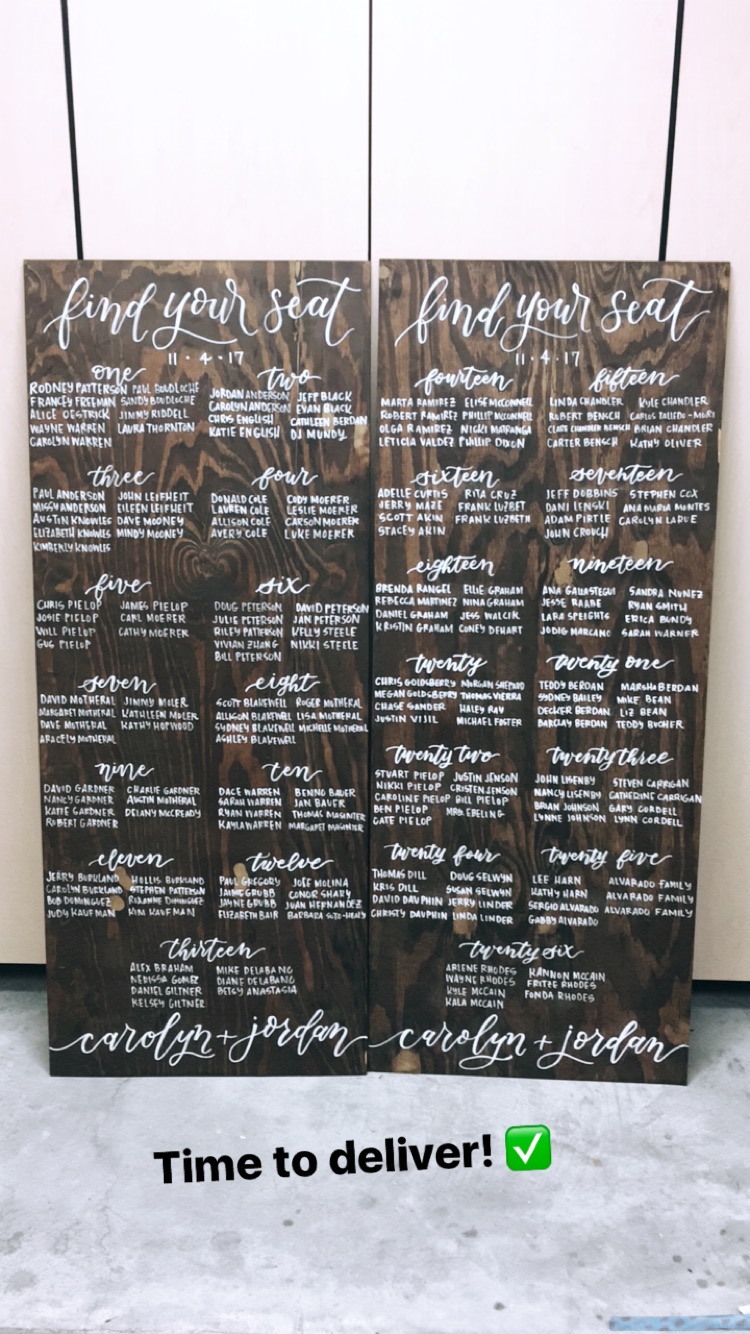 find your seat
11·4·17
one
RODNEY PATTERSON PAUL BOUDLOCHE
FRANCEY FREEMAN SANDY BOUDLOCHE
ALICE OESTRICK JIMMY RIDDELL
WAYNE WARREN LAURA THORNTON
CAROLYN WARREN
two
JORDAN ANDERSON JEFF BLACK
CAROLYN ANDERSON EVAN BLACK
CHRIS ENGLISH CATHLEEN BERDAN
KATIE ENGLISH DJ MUNDY
three
PAUL ANDERSON JOHN LEIFHEIT
MISSY ANDERSON EILEEN LEIFHEIT
AUSTIN KNOWLES DAVE MOONEY
ELIZABETH KNOWLES MINDY MOONEY
KIMBERLY KNOWLES
four
DONALD COLE CODY MOERER
LAUREN COLE LESLIE MOERER
ALLISON COLE CARSON MOERER
AVERY COLE LUKE MOERER
five
CHRIS PIELOP JAMES PIELOP
JOSIE PIELOP CARL MOERER
WILL PIELOP CATHY MOERER
GUS PIELOP
six
DOUG PETERSON DAVID PETERSON
JULIE PETERSON JAN PETERSON
RILEY PATTERSON KELLY STEELE
VIVIAN ZHANG NIKKI STEELE
BILL PETERSON
seven
DAVID MOTHERAL JIMMY MOLER
MARGARET MOTHERAL KATHLEEN MOLER
DAVE MOTHERAL KATHY HOPWOOD
ARACELY MOTHERAL
eight
SCOTT BLAKEWELL ROGER MOTHERAL
ALLISON BLAKEWELL LISA MOTHERAL
SYDNEY BLAKEWELL MICHELLE MOTHERAL
ASHLEY BLAKEWELL
nine
DAVID GARDNER CHARLIE GARDNER
NANCY GARDNER AUSTIN MOTHERAL
KATIE GARDNER DELANY MCCREADY
ROBERT GARDNER
ten
DACE WARREN BENNO BAUER
SARAH WARREN JAN BAUER
RYAN WARREN THOMAS MASINTER
KAYLA WARREN MARGARET MASINTER
eleven
JERRY BURKLAND HOLLIS BURKLAND
CAROLYN BURKLAND STEPHEN PATTERSON
BOB DOMINGUEZ ROXANNE DOMINGUEZ
JUDY KAUFMAN KIM KAUFMAN
twelve
PAUL GREGORY JOSE MOLINA
JAIME GRUBB CONOR SHARY
JAYNE GRUBB JUAN HERNANDEZ
ELIZABETH BAIR BARBARA SOTO-HEALY
thirteen
ALEX BRAHAM MIKE DELABANO
NERISSA GOMEZ DIANE DELABANO
DANIEL GILTNER BETSY ANASTASIA
KELSEY GILTNER
carolyn + jordan
find your seat
11·4·17
fourteen
MARTA RAMIREZ ELISE MCCONNELL
ROBERT RAMIREZ PHILLIP MCCONNELL
OLGA RAMIREZ NICKI MATRANGA
LETICIA VALDEZ PHILLIP DIXON
fifteen
LINDA CHANDLER KYLE CHANDLER
ROBERT BENSCH CARLOS TOLEDO-MORI
CLATE CHANDLER BENSCH BRIAN CHANDLER
CARTER BENSCH KATHY OLIVER
sixteen
ADELLE CURTIS RITA CRUZ
JERRY MAZE FRANK LUZBET
SCOTT AKIN FRANK LUZBETH
STACEY AKIN
seventeen
JEFF DOBBINS STEPHEN COX
DANI LENSKI ANA MARIA MONTES
ADAM PIRTLE CAROLYN LARUE
JOHN CROUCH
eighteen
BRENDA RANGEL ELLIE GRAHAM
REBECCA MARTINEZ NINA GRAHAM
DANIEL GRAHAM JESS WALCIK
KRISTIN GRAHAM COREY DEHART
nineteen
ANA GALLASTEGUI SANDRA NUNEZ
JESSE RAABE RYAN SMITH
LARA SPEIGHTS ERICA BUNDY
JODIG MARCANO SARAH WARNER
twenty
CHRIS GOLDSBERRY MORGAN SHEPARD
MEGAN GOLDSBERRY THOMAS VIERRA
CHASE SANDER HALEY RAY
JUSTIN VIJIL MICHAEL FOSTER
twenty one
TEDDY BERDAN MARSHA BERDAN
SYDNEY BAILEY MIKE BEAN
DECKER BERDAN LIZ BEAN
BARCLAY BERDAN TEDDY BUCHER
twenty two
STUART PIELOP JUSTIN JENSON
NIKKI PIELOP CRISTEN JENSON
CAROLINE PIELOP BILL PIELOP
BEN PIELOP MRS. EBELING
CATE PIELOP
twenty three
JOHN LISENBY STEVEN CARRIGAN
NANCY LISENBY CATHERINE CARRIGAN
BRIAN JOHNSON GARY CORDELL
LYNNE JOHNSON LYNN CORDELL
twenty four
THOMAS DILL DOUG SELWYN
KRIS DILL SUSAN SELWYN
DAVID DAUPHIN JERRY LINDER
CHRISTY DAUPHIN LINDA LINDER
twenty five
LEE HARN ALVARADO FAMILY
KATHY HARN ALVARADO FAMILY
SERGIO ALVARADO ALVARADO FAMILY
GABBY ALVARADO
twenty six
ARLENE RHODES KANNON MCCAIN
WAYNE RHODES FRITZE RHODES
KYLE MCCAIN FONDA RHODES
KALA MCCAIN
carolyn + jordan
Time to deliver! ✅